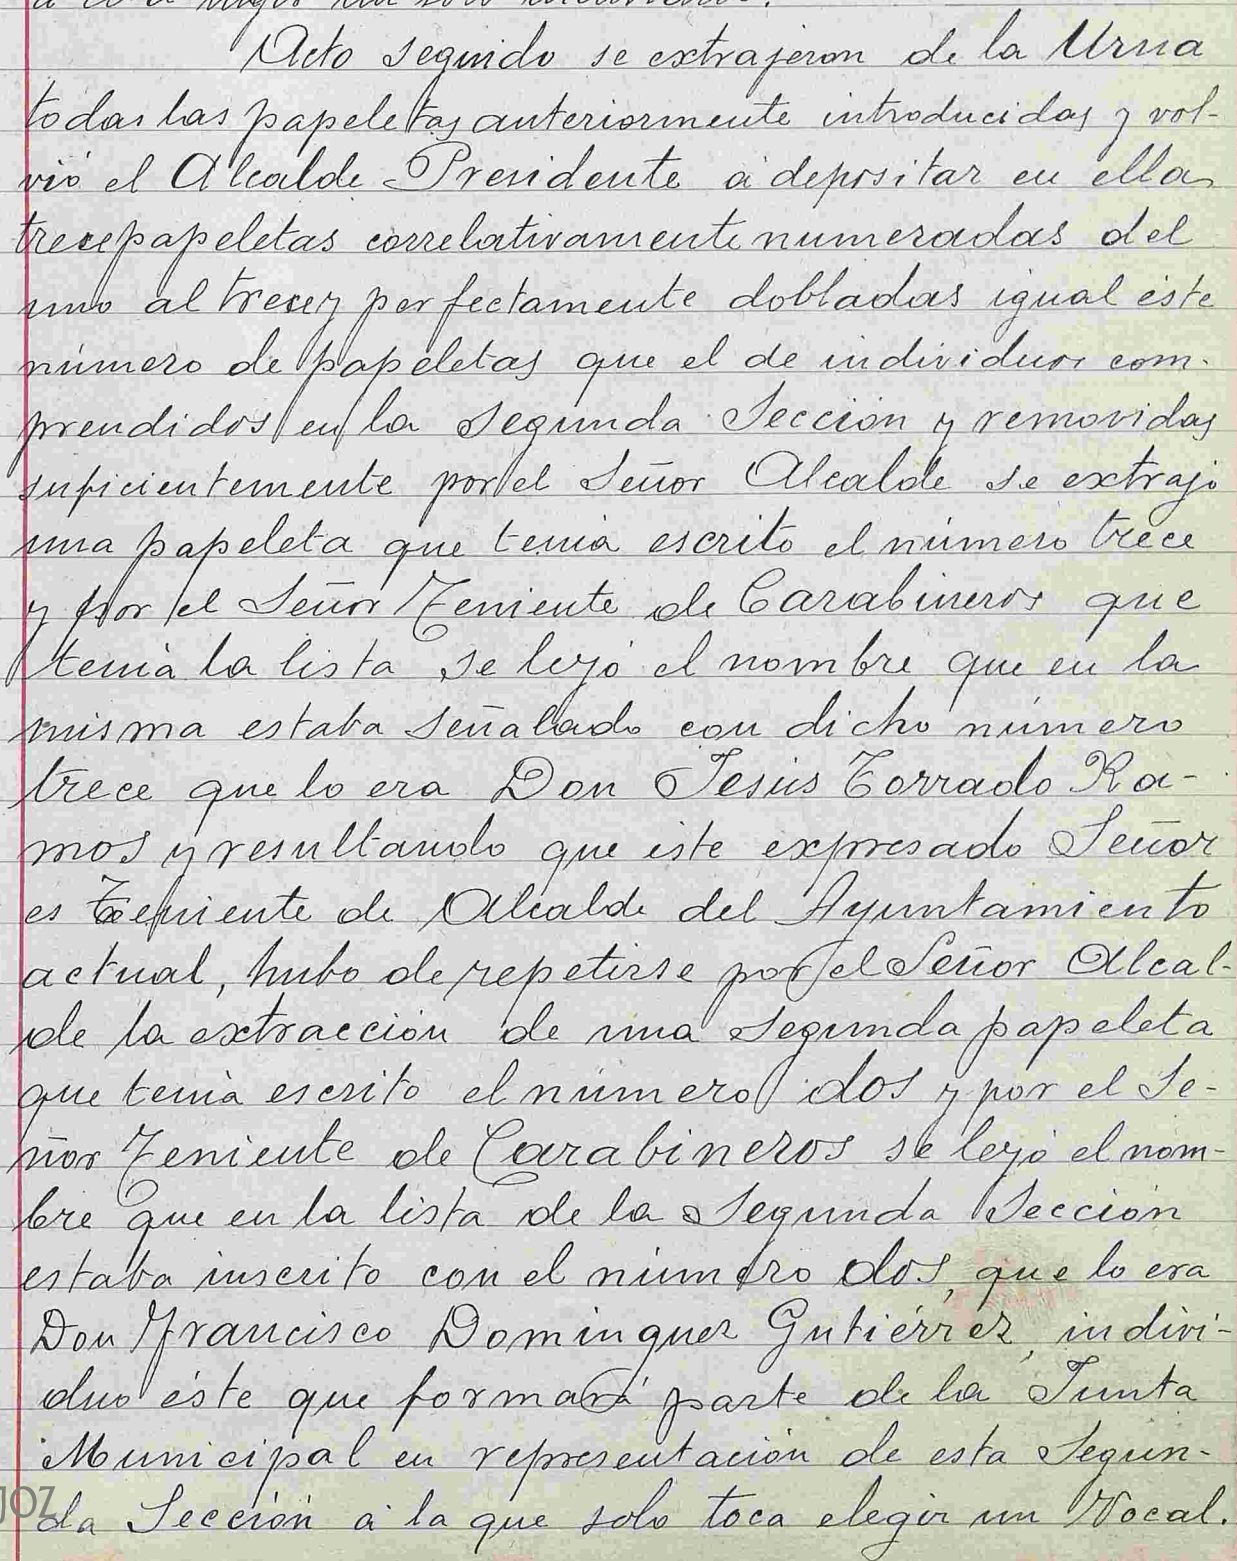 Acto seguido se extrajeron de la Urna
todas las papeletas anteriormente introducidas y vol-
vió el Alcalde Presidente á depositar en ella
trece papeletas correlativamente numeradas del
uno al trece y perfectamente dobladas igual éste
número de papeletas que el de individuos com-
prendidos en la segunda Sección y removidas
suficientemente por el Señor Alcalde se extrajo
una papeleta que tenia escrito el número trece
y por el Señor Teniente de Carabineros que
tenia la lista se leyó el nombre que en la
misma estaba señalado con dicho número
trece que lo era Don Jesús Torrado Ra-
mos y resultando que éste expresado Señor
es Teeniente de Alcalde del Ayuntamiento
actual, hubo de repetirse por el Señor Alcal-
de la extracción de una segunda papeleta
que tenia escrito el número dos y por el Se-
ñor Teniente de Carabineros se leyó el nom-
bre que en la lista de la Segunda Sección
estaba inscrito con el número dos, que lo era
Don Francisco Dominguez Gutiérrez, indivi-
duo éste que formará parte de la Junta
Municipal en representación de esta Segun-
da Sección á la que solo toca elegir un Vocal.
JOZ